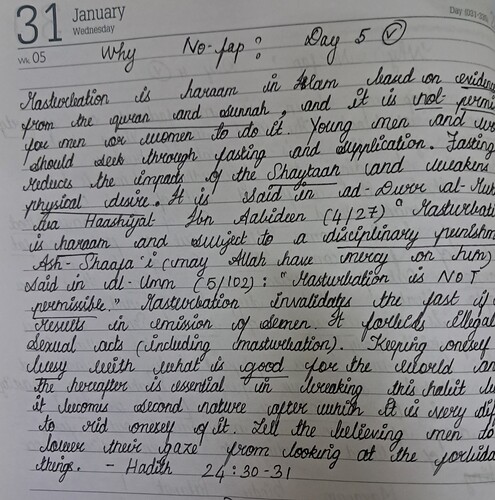 31 January
Wednesday
Wk 05
Day (031-335
Why No-fap? Day 5
Masturbation is haraam in Islam based on eviden
from the quran and sunnah, and it is not permi
for men or women to do it. Young men and wo
should seek through fasting and supplication. Fasting
reduces the impact of the Shaytaan and weakens
physical desire. It is said in ad-Durr al-Mukh
ma Haashiyat Ibn Aabideen (4/27) " Masturbati
is haraam and subject to a disciplinary punishm
Ash-Shaafa'i (may Allah have mercy on him)
said in al-Umm (5/102) : "Masturbation is NOT
permissible." Masturbation invalidates the fast if
results in emission of semen. It forbids illegal
sexual acts (including masturbation). Keeping oneself
busy with what is good for the world an
the hereafter is essential in breaking this habit
it becoms second nature after which it is very dif
to rid oneself of it. Tell the believing men to
lower their gaze from looking at the forbidd
things. - Hadith 24:30-31